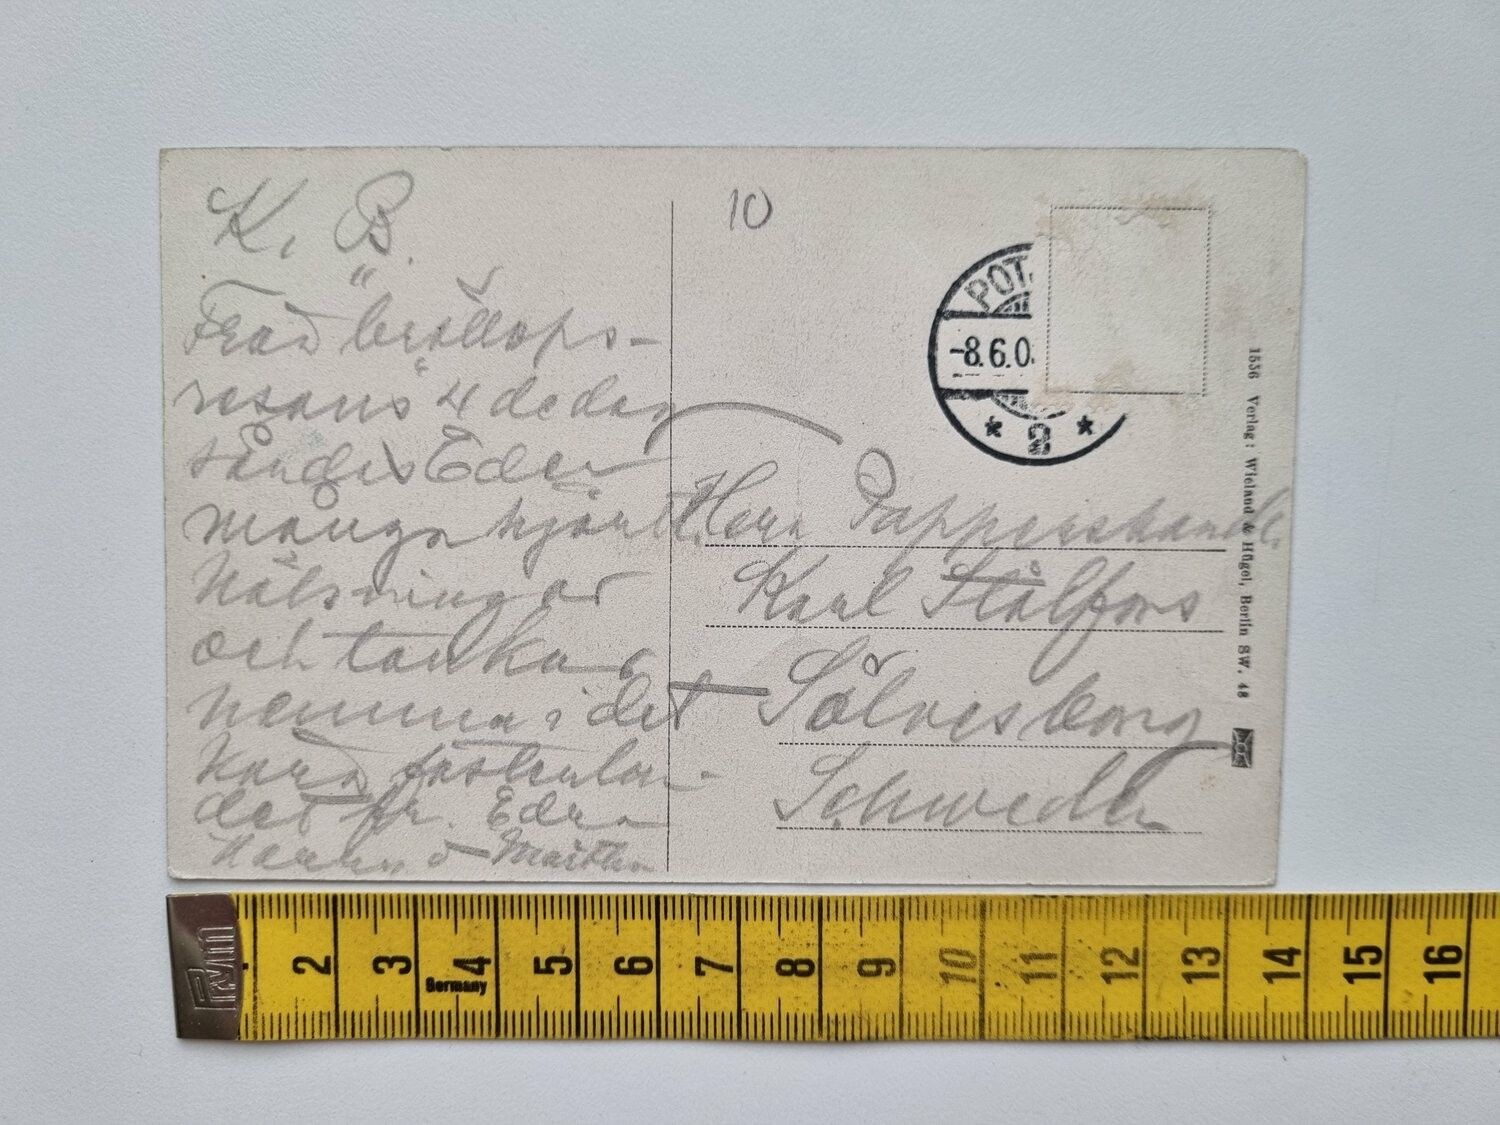 K. B.
Från bröllops-
resans 4de dag
sändes Eder
många hjärtl.
hälsningar
och tankar
hemma i det
kära fosterlan-
det fr. Edra
Harry o Martha
10
POT
-8.6.0
* 2 *
Herr Pappershandl.
Karl Stålfors
Sölvesborg
Schweden
1556 Verlag: Wieland & Hügel, Berlin SW. 48
Prym
2 3 4 5 6 7 8 9 10 11 12 13 14 15 16
Germany